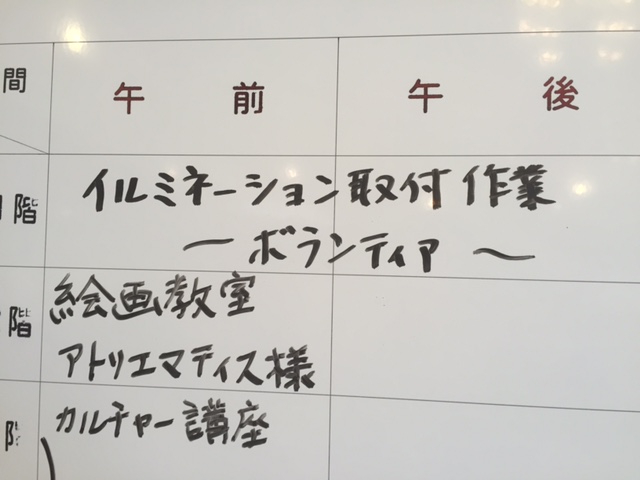 間
午前
午後
階
イルミネーション取付作業
〜ボランティア〜
階
絵画教室
アトリエマティス様
カルチャー講座